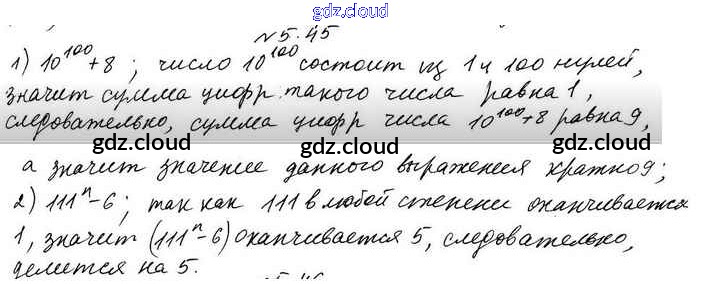 gdz.cloud
№5.45
1) 10^100+8; число 10^100 состоит из 1 и 100 нулей,
значит сумма цифр такого числа равна 1,
следовательно, сумма цифр числа 10^100+8 равна 9,
gdz.cloud gdz.cloud gdz.cloud
а значит значение данного выражения кратно 9;
2) 111^n-6; так как 111 в любой степени оканчивается
1, значит (111^n-6) оканчивается 5, следовательно,
делится на 5.
gdz.cloud